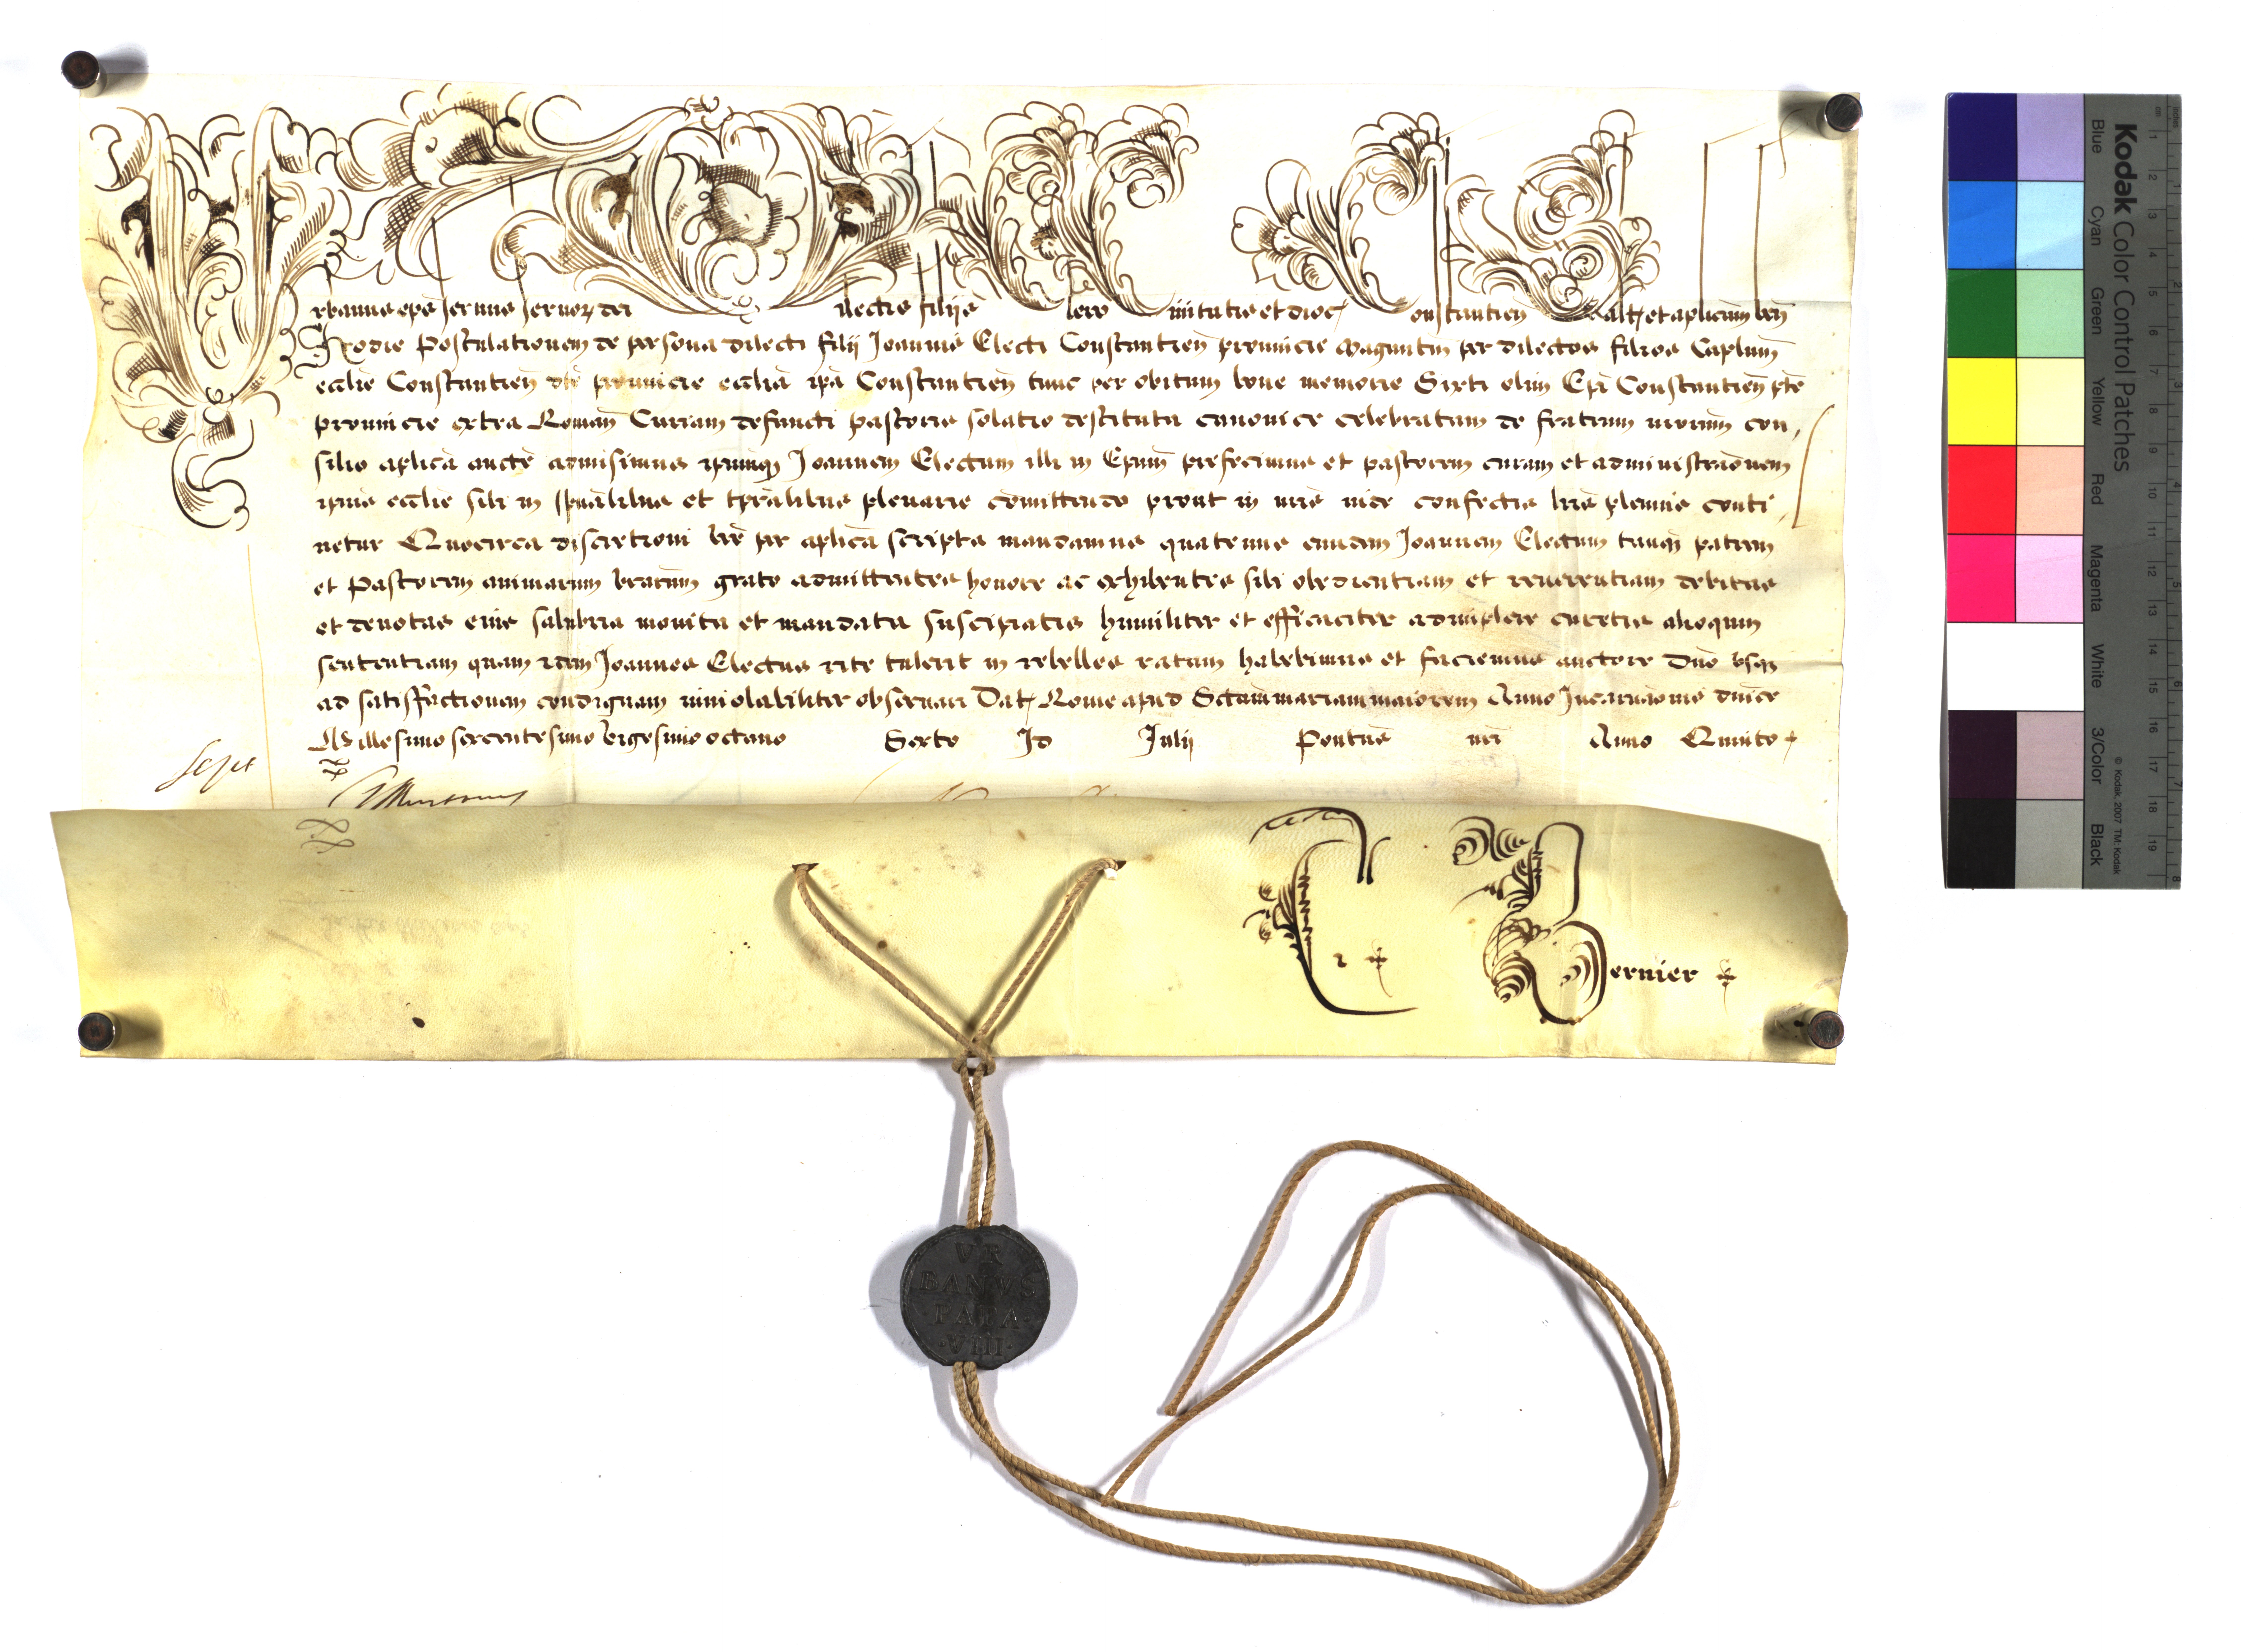 Urbanus ep̄s seruus seruoꝝ dei Dilectis filijs Clero Ciuitatis et dioc̄ Constantien̄ Salt̄ et aplicam̄ ben̄
Hodie Postulationem de persona dilecti filij Joannis Electi Constantien̄ prouincie Maguntin̄ per dilectos filios Caplum̄
eccl̄ie Constantien̄ dc̄e prouincie eccl̄ia ip̄a Constantien̄ tunc per obitum bone memorie Sixti olim Ep̄i Constantien̄ pte
prouincie extra Roman̄ Curiam defuncti pastoris solatio destituta canonice celebratam de fratrum nrorum̄ con
silio aplica aucte admisimus ipsumq̄ Joannem Electum illi in Epum̄ prefecimus et pastorem curam et administrao̅nem
ipsius eccl̄ie sibi in sp̄ualibus et tp̄ralibus plenarie cōmittendo prout in nris̄ inde confectis lris̄ plenius conti
netur Quocirca discretioni vrē per aplica scripta mandamus quatenus eundem Joannem Electum tanq̄ patrem
et Pastorem animarum vrarum̄ grato admittentes honore ac exhibentes sibi obedientiam et reuerentiam debitas
et deuotas eius salubria monita et mandata suscipiatis humiliter et efficaciter adimplere curetis alioquin
sententiam quam idem Joannes Electus rite tulerit in rebelles ratam habebimus et faciemus auctore Dnō vsq̄
ad satisfactionem condignam inuiolabiliter obseruari Dat̄ Rome apud Sctam̄ mariam maiorem Anno Incarnaōnis dnice
Millesimo sexcentesimo vigesimo octauo Sexto Id Julij Pontus̄ nri Anno Quinto
Bernier
VR
BANVS
·PAPA·
·VIII·
Kodak Color Control Patches
Blue Cyan Green Yellow Red Magenta White 3/Color Black
© Kodak, 2007 TM: Kodak
cm 1 2 3 4 5 6 7 8 9 10 11 12 13 14 15 16 17 18 19
inches 1 2 3 4 5 6 7 8